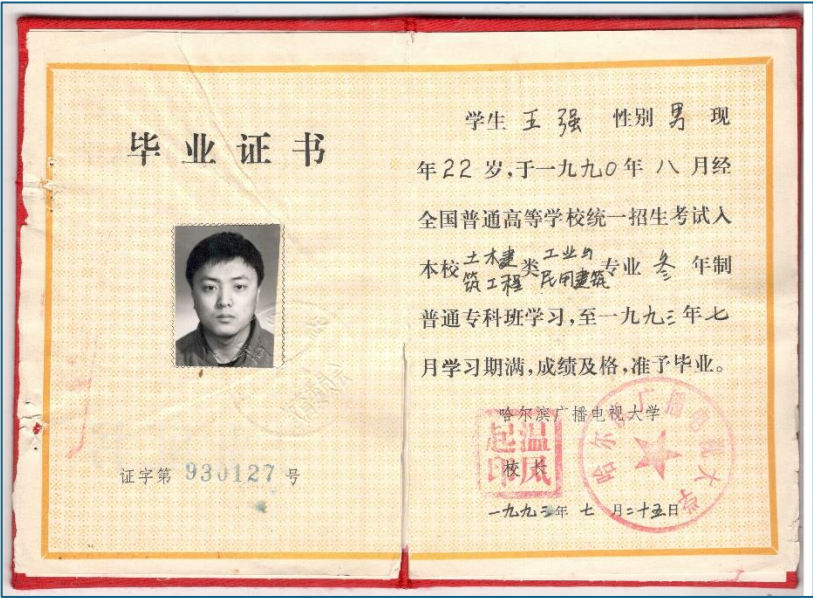 毕业证书
证字第 930127 号
学生 王强 性别 男 现
年22岁,于一九九0年 八 月经
全国普通高等学校统一招生考试入
本校土木建筑工程类工业与民用建筑专业 叁 年制
普通专科班学习,至一九九三年七
月学习期满,成绩及格,准予毕业。
哈尔滨广播电视大学
校长
温凤起印
一九九三年 七 月二十五日
哈尔滨广播电视大学